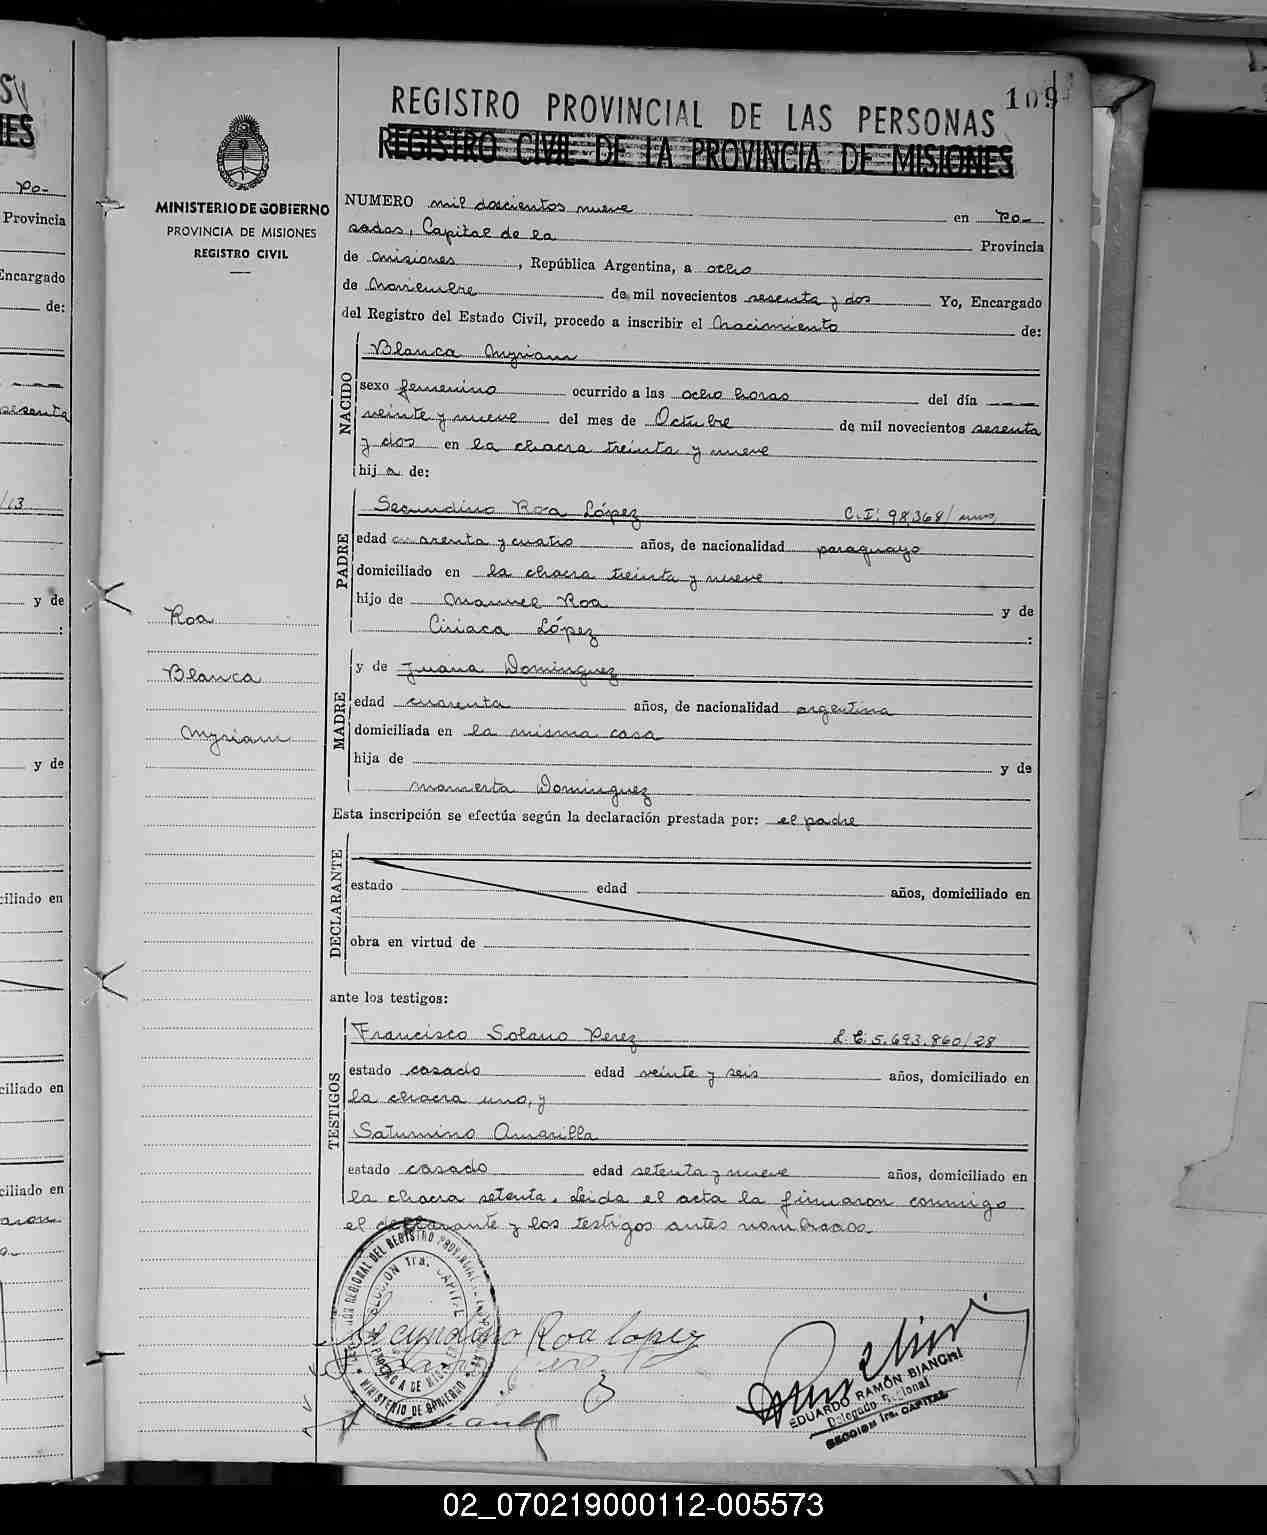 109
REGISTRO PROVINCIAL DE LAS PERSONAS
REGISTRO CIVIL DE LA PROVINCIA DE MISIONES
MINISTERIO DE GOBIERNO
PROVINCIA DE MISIONES
REGISTRO CIVIL
NUMERO mil doscientos nueve en Po-
sadas, Capital de la Provincia
de Misiones, República Argentina, a ocho
de Noviembre de mil novecientos sesenta y dos Yo, Encargado
del Registro del Estado Civil, procedo a inscribir el Nacimiento de:
NACIDO
Blanca Myriam
sexo femenino ocurrido a las ocho horas del día
veinte y nueve del mes de Octubre de mil novecientos sesenta
y dos en la chacra treinta y nueve
hij a de:
PADRE
Secundino Roa López C.I: 98368/
edad cuarenta y cuatro años, de nacionalidad paraguayo
domiciliado en la chacra treinta y nueve
hijo de Manuel Roa y de
Ciriaca López :
Roa
Blanca
Myriam
MADRE
y de Juana Dominguez
edad cuarenta años, de nacionalidad argentina
domiciliada en la misma casa
hija de y de
Mamerta Dominguez
Esta inscripción se efectúa según la declaración prestada por: el padre
DECLARANTE
estado edad años, domiciliado en
obra en virtud de
ante los testigos:
TESTIGOS
Francisco Solano Perez L.E: 5.693.860/28
estado casado edad veinte y seis años, domiciliado en
la chacra uno, y
Saturnino Amarilla
estado casado edad setenta y nueve años, domiciliado en
la chacra setenta. Leida el acta la firmaron conmigo
el declarante y los testigos antes nombrados.
Secundino Roa lopez
EDUARDO RAMÓN BIANCHI
Delegado Regional
SECCION 1ra. CAPITAL
MINISTERIO DE GOBIERNO
Po-
Provincia
Encargado
de:
sesenta
/13
y de
:
y de
ciliado en
ciliado en
ciliado en
02_070219000112-005573